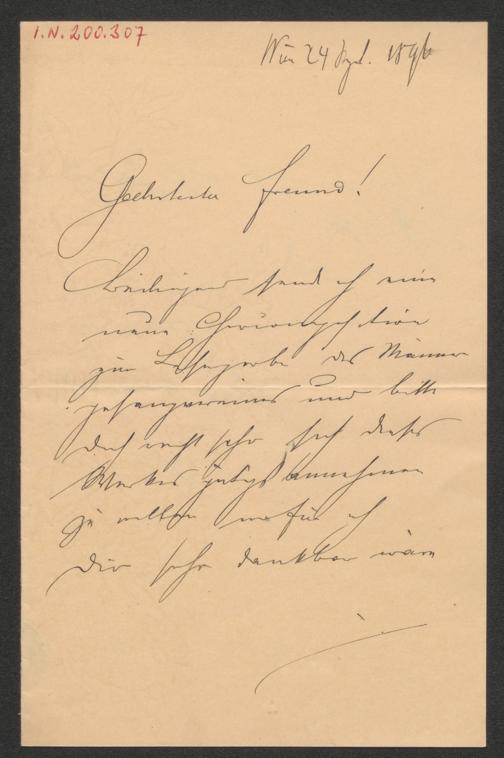 I.N. 200.307
Wien 24 Sept. 1896
Geehrtester Freund!
Beiliegend sende ich eine
neue Chorcomposition
zur Leseprobe des Männer
gesangvereines und bitte
Dich recht sehr sich dieses
Werkes gütigst annehmen
zu wollen wofür ich
Dir sehr dankbar wäre